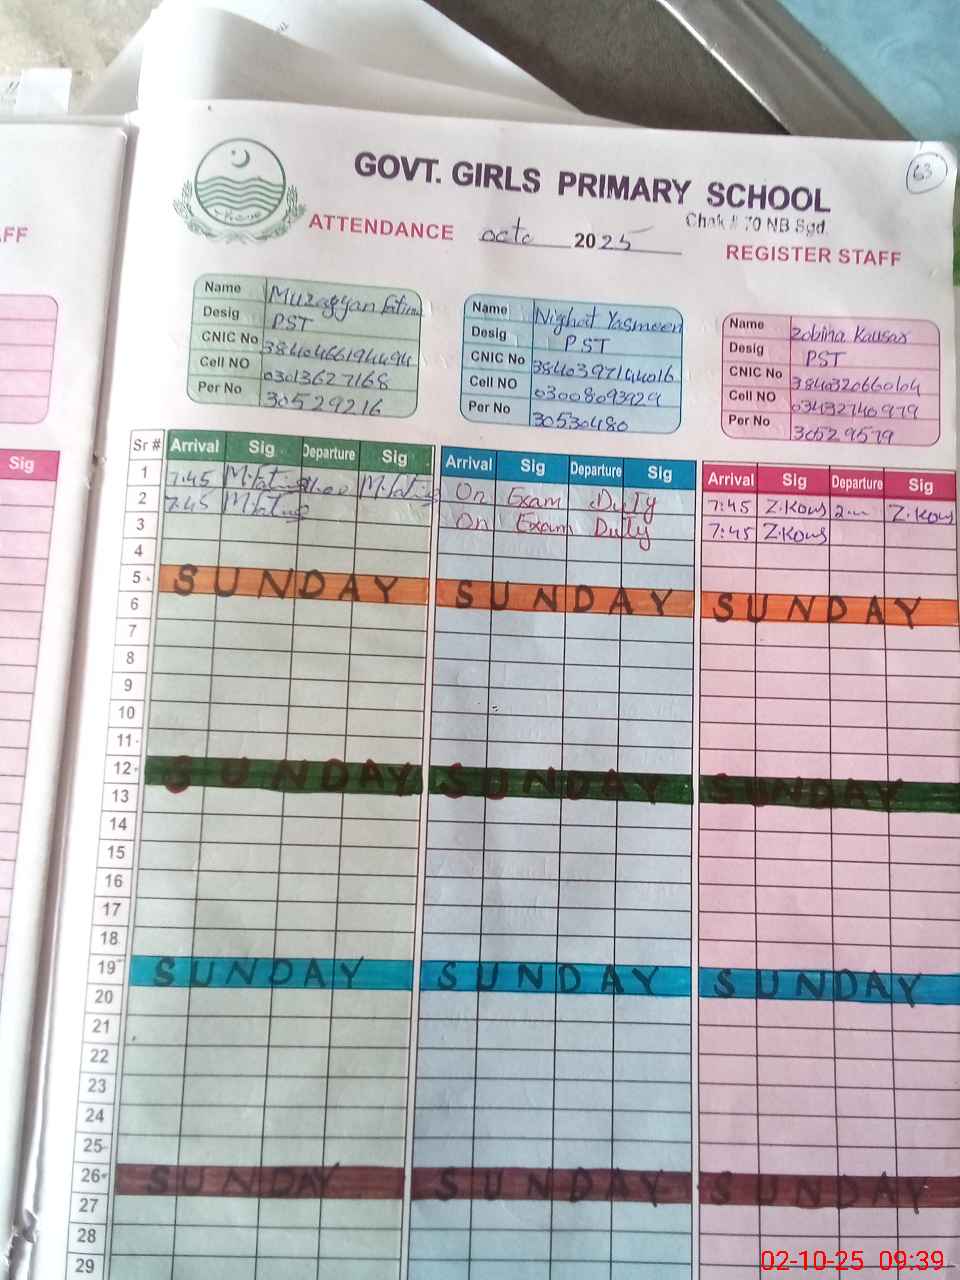 63
GOVT. GIRLS PRIMARY SCHOOL
Chak # 70 NB Sgd.
ATTENDANCE octo 2025
REGISTER STAFF
FF
Name
Desig PST
CNIC No
Cell NO 03013627168
Per No 30529216
Name Nighat Yasmeen
Desig PST
CNIC No 3840397144016
Cell NO 03008093929
Per No 30530480
Name Zobina Kausar
Desig PST
CNIC No 3840320660104
Cell NO 03432740979
Per No 30529579
Sig
Sr # Arrival Sig Departure Sig Arrival Sig Departure Sig Arrival Sig Departure Sig
1 7:45 On Exam Duty 7:45 Z.Kous Z.Kous
2 7:45 On Exam Duty 7:45 Z.Kous
3
4
5 SUNDAY SUNDAY SUNDAY
6
7
8
9
10
11
12 SUNDAY SUNDAY SUNDAY
13
14
15
16
17
18
19 SUNDAY SUNDAY SUNDAY
20
21
22
23
24
25
26 SUNDAY SUNDAY SUNDAY
27
28
29
02-10-25 09:39